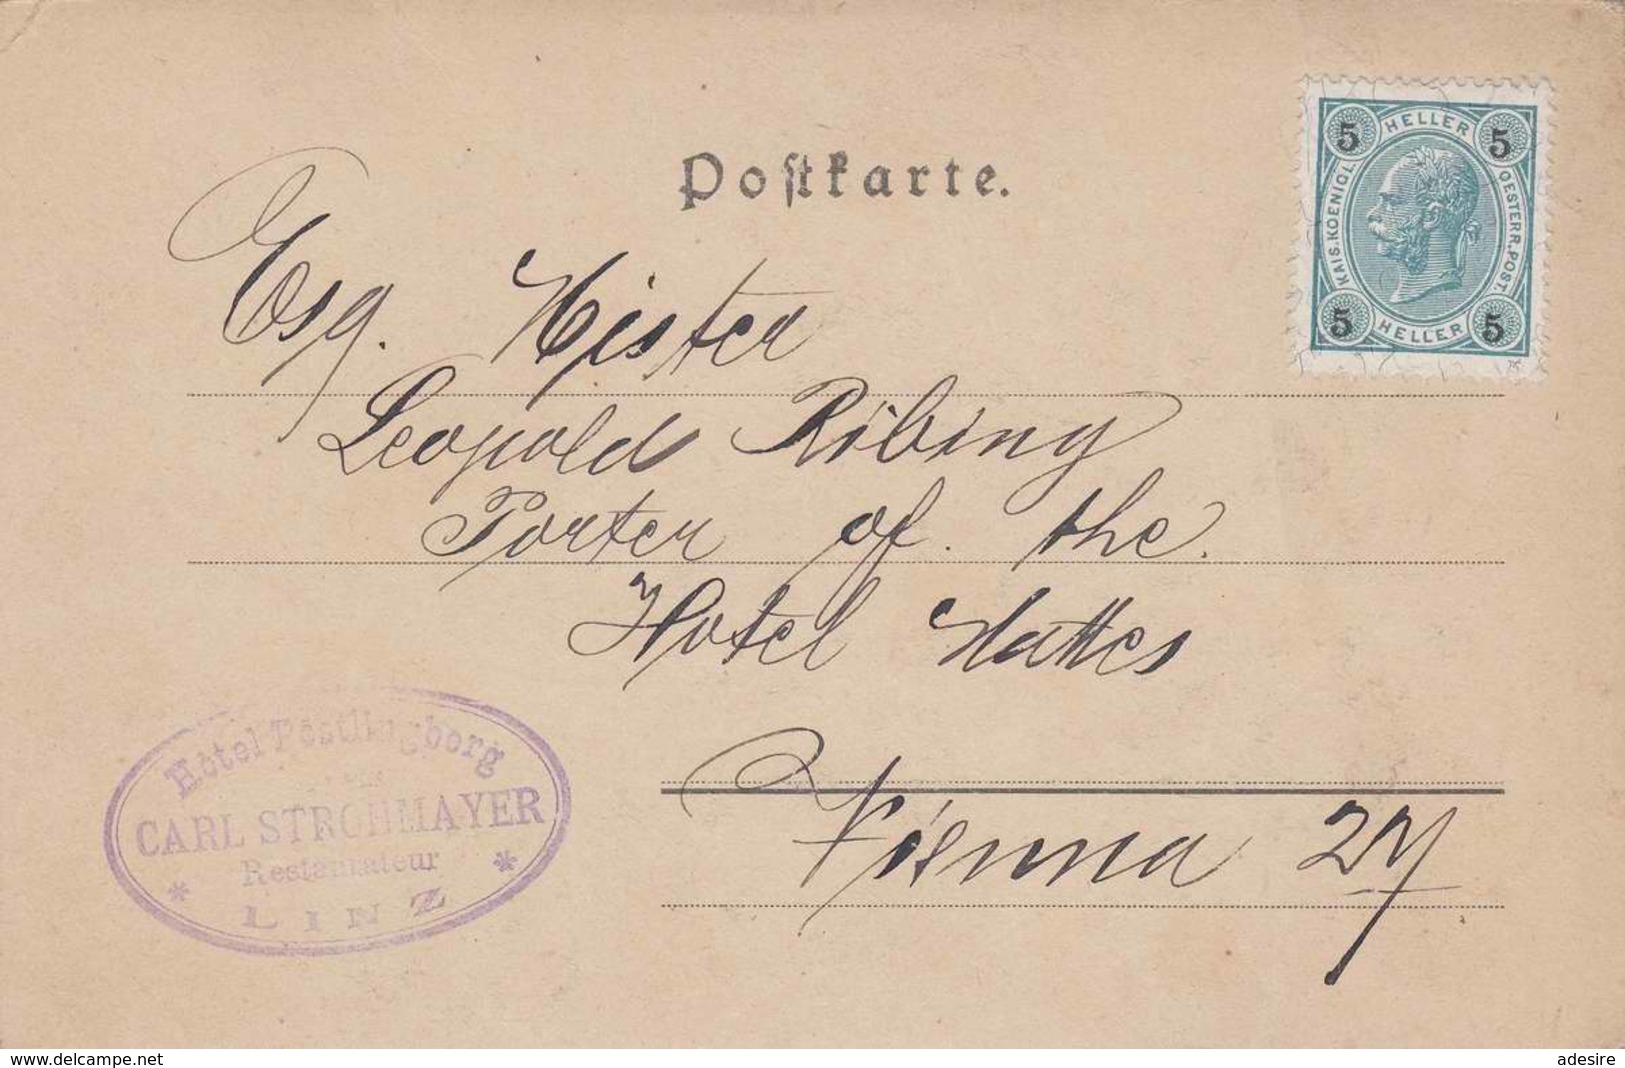 Postkarte.
5 HELLER 5
KAIS. KOENIGL. OESTERR. POST.
5 HELLER 5
Esq. Mister
Leopold Ribing
Porter of the
Hotel
Vienna
Hôtel Pöstlingberg
CARL STROHMAYER
Restaurateur
* LINZ *
www.delcampe.net
adesire